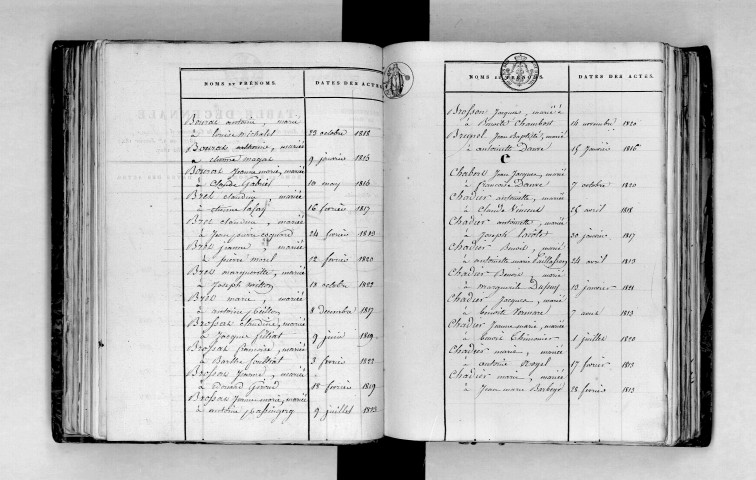 NOMS ET PRÉNOMS. DATES DES ACTES
Bourat antoine, marié
à Louise 23 octobre 1818
Bourat antoinne, mariée
a etienne 9 janvier 1813
Bourat Jeanne marie, mariée
à Claude Gabriel 10 may 1816
Bret claudine, mariée
à etienne 16 fevrier 1817
Bret claudine, mariée
à Jean pierre 24 fevrier 1813
Bret jeanne, mariée
à pierre morel 12 fevrier 1820
Bret marguerite, mariée
à Joseph 18 octobre 1822
Bret marie, mariée
à antoine 8 decembre 1817
Brossat claudine, mariée
à Jacques 9 juin 1819
Brossat francoise, mariée
à Barthe 3 fevrier 1822
Brossat Jeanne, mariée
à Edouard Giroud 18 fevrier 1819
Brossat Jeanne marie, mariée
à antoine 9 juillet 1823
NOMS ET PRÉNOMS. DATES DES ACTES.
Brosson Jacques, marié à
à Benoite Chambost 14 novembre 1820
Brunel Jean Baptiste, marié
à antoinette Danve 15 Janvier 1816
C
Chabert Jean Jacques, marié
à francoise Danve 7 octobre 1820
Chadier antoinette, mariée
à Claude Vincent 26 avril 1818
Chadier antoinette, mariée
à Joseph 20 janvier 1817
Chadier Benoit, marié
à antoinette marie 24 avril 1813
Chadier Benoit, marié
à marguerite Dupuy 13 janvier 1821
Chadier Jacques, marié
à benoite 7 aout 1813
Chadier Jeanne marie, mariée
à benoit 1 juillet 1820
Chadier marie, mariée
à antoine 17 fevrier 1813
Chadier marie, mariée
à Jean marie 28 fevrier 1813